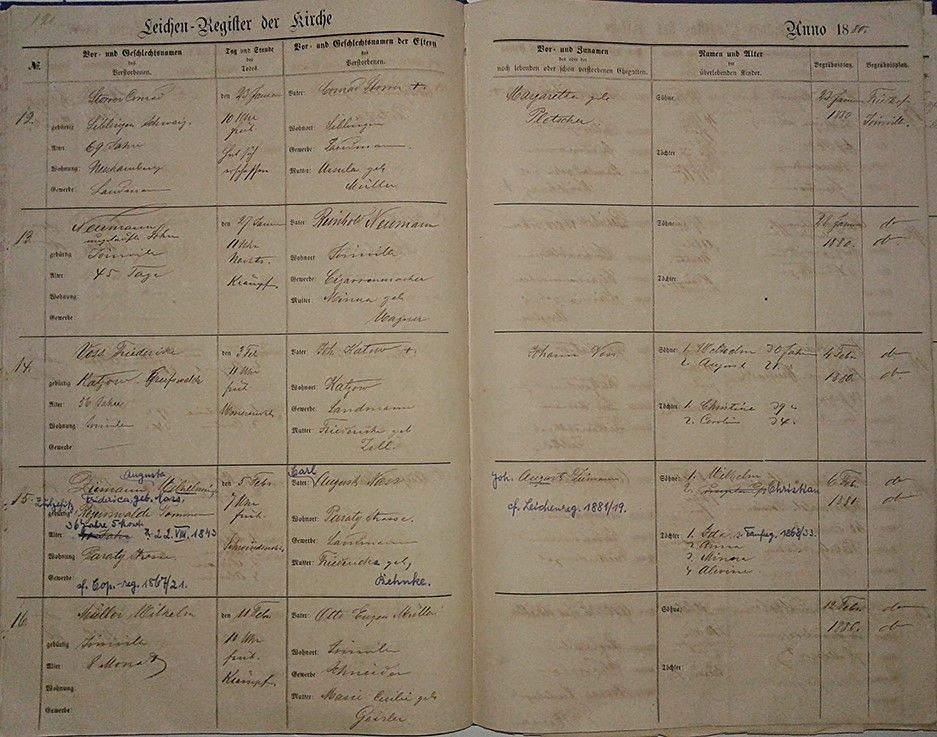 Leichen-Register der Kirche
№
Vor- und Geschlechtsnamen
des
Verstorbenen.
Tag und Stunde
des
Todes.
Vor- und Geschlechtsnamen der Eltern
des
Verstorbenen.
12.
Storrer Conrad
gebürtig Siblingen Schweiz.
Alter 69 Jahre
Wohnung
Gewerbe Landmann
den 23 Januar
10 Uhr
früh
Vater: Conrad Storrer +.
Wohnort: Siblingen
Gewerbe: Landmann.
Mutter: Ursula geb
Müller
13.
Neumann
ungetaufter Sohn
gebürtig Joinville
Alter 45 Tage
Wohnung
Gewerbe
den 27 Januar
11 Uhr
Nachts.
Krämpf.
Vater: Reinhold Neumann
Wohnort Joinville
Gewerbe: Cigarrenmacher
Mutter: Minna geb
Wagner
14.
Voss Friederike
gebürtig Katzow. Greifswald
Alter 56 Jahre
Wohnung
Gewerbe:
den 3 Feb
11 Uhr
früh
Vater: Joh. Katzow +
Wohnort: Katzow
Gewerbe: Landmann
Mutter: Friederike geb
Zell.
15.
Augusta
Ziemann
Friderica, geb. Nass.
gebürtig Regenwalde Pommern
36 Jahre 5 Mont
Alter * 22. VIII. 1843
Wohnung Paraty Strasse
Gewerbe: cf. Cop.-reg. 1867/21.
den 5 Febr.
7 Uhr
früh.
Schwindsucht
Carl
Vater: August Nass
Wohnort: Paraty Strasse.
Gewerbe: Landmann
Mutter: Friederike geb.
Behnke.
16.
Müller Wilhelm
gebürtig Joinville
Alter 8 Monat
Wohnung:
Gewerbe:
den 11 Febr.
10 Uhr
früh.
Krämpf.
Vater: Otto Eugen Müller
Wohnort: Joinville
Gewerbe Schneider
Mutter: Marie Cecilie geb
Geisler
Anno 1880.
Vor- und Zunamen
des oder der
noch lebenden oder schon verstorbenen Ehegatten.
Namen und Alter
der
überlebenden Kinder.
Begräbnisstag.
Begräbnisplatz.
Margaretha geb
Pletscher.
Söhne:
Töchter
23 Januar
1880
Friedhof
Joinville.
Söhne:
Töchter
1880.
do
do.
Johann Voss
Söhne: 1. Wilhelm 30 Jahr
2. August 21.
Töchter 1. Christine 29
2. Caroline 24.
4 Febr.
1880.
do
do.
Joh. August Ziemann
cf. Leichenreg. 1881/19.
Söhne: 1. Wilhelm
2. Christian
Töchter: 1. Ida s. Taufreg. 1868/33.
2. Anna
3. Minna
4 Alwine.
6 Feb.
1880.
do
do.
Söhne:
Töchter:
12 Febr.
1880.
do
do.